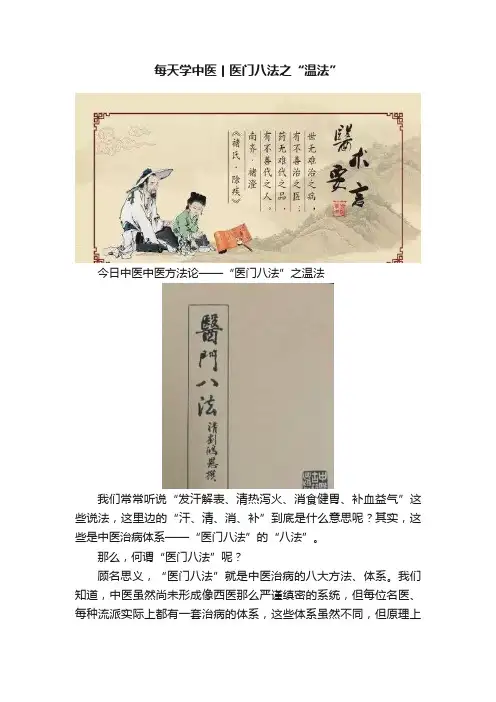 每天学中医 | 医门八法之“温法”
醫术要言
世无难治之病，
有不善治之医；
药无难代之品，
有不善代之人。
南齐·褚澄
《褚氏·除疾》
今日中医中医方法论——“医门八法”之温法
醫門八法
清劉鴻恩撰
我们常常听说“发汗解表、清热泻火、消食健胃、补血益气”这
些说法，这里边的“汗、清、消、补”到底是什么意思呢？其实，这
些是中医治病体系——“医门八法”的“八法”。
那么，何谓“医门八法”呢？
顾名思义，“医门八法”就是中医治病的八大方法、体系。我们
知道，中医虽然尚未形成像西医那么严谨缜密的系统，但每位名医、
每种流派实际上都有一套治病的体系，这些体系虽然不同，但原理上